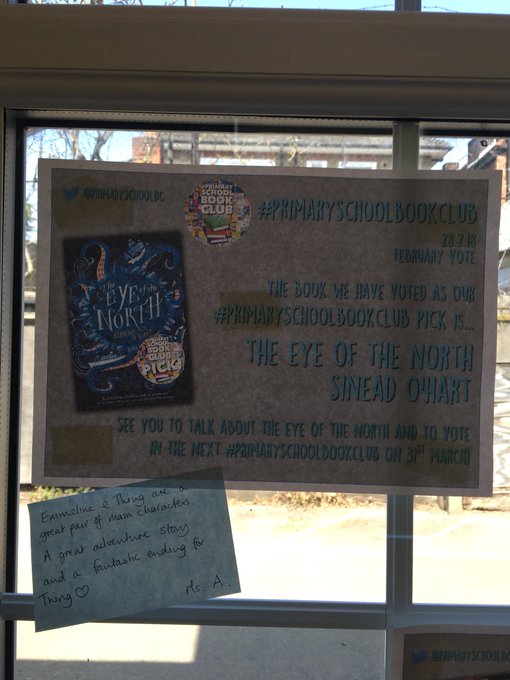 @PRIMARYSCHOOLBC
#PRIMARY
SCHOOL
BOOK
CLUB
#PRIMARYSCHOOLBOOKCLUB
28.2.18
FEBRUARY VOTE
The
EYE of the
NORTH
SINEAD O'HART
#PRIMARY
SCHOOL
BOOK
CLUB
PICK
THE BOOK WE HAVE VOTED AS OUR
#PRIMARYSCHOOLBOOKCLUB PICK IS...
THE EYE OF THE NORTH
SINEAD O'HART
SEE YOU TO TALK ABOUT THE EYE OF THE NORTH AND TO VOTE
IN THE NEXT #PRIMARYSCHOOLBOOKCLUB ON 31ST MARCH!
Emmeline & Thing are a
great pair of main characters.
A great adventure story
and a fantastic ending for
Thing ♡
rls. A.
@PRIMARYSCHOOLBC